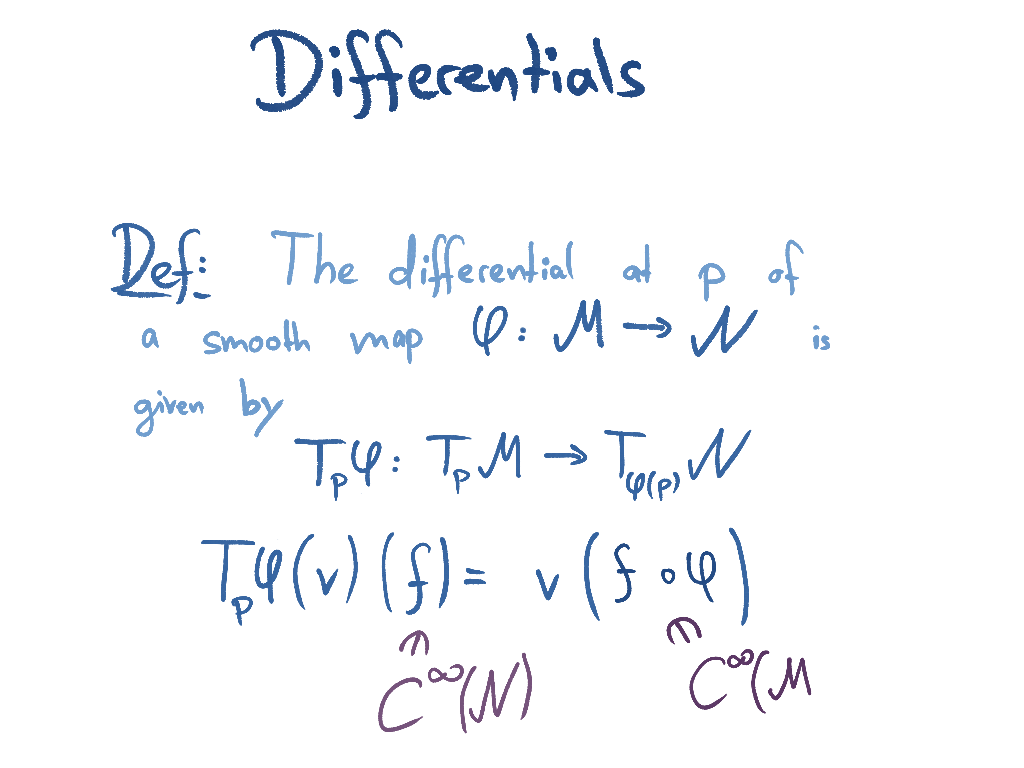 Differentials
Def: The differential at p of
a smooth map φ: M → N is
given by
Tₚφ: TₚM → T_φ(p) N
Tₚφ(v)(f) = v(f∘φ)
∈ ∈
C^∞(N) C^∞(M